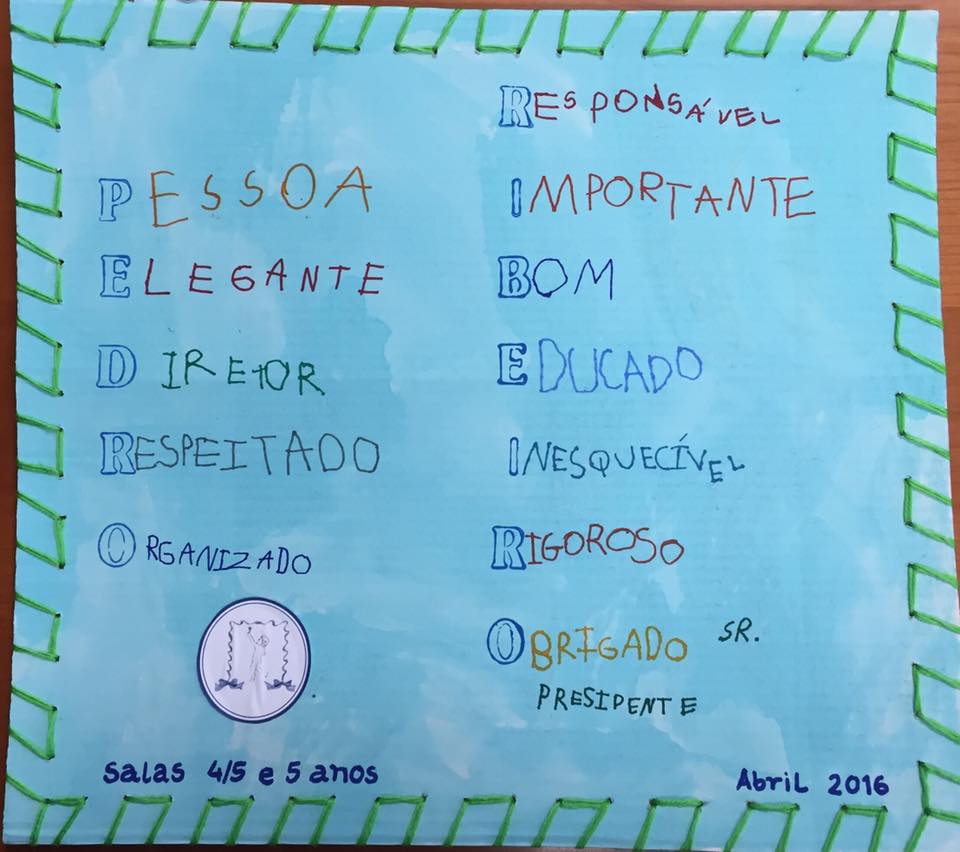 PESSOA
ELEGANTE
DIRETOR
RESPEITADO
ORGANIZADO
RESPONSÁVEL
IMPORTANTE
BOM
EDUCADO
INESQUECÍVEL
RIGOROSO
OBRIGADO SR.
PRESIDENTE
Salas 4/5 e 5 anos
Abril 2016